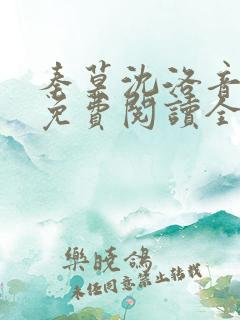 秦墓沈洛音
免費閱讀全
樂曉鴿
未經同意禁止轉載